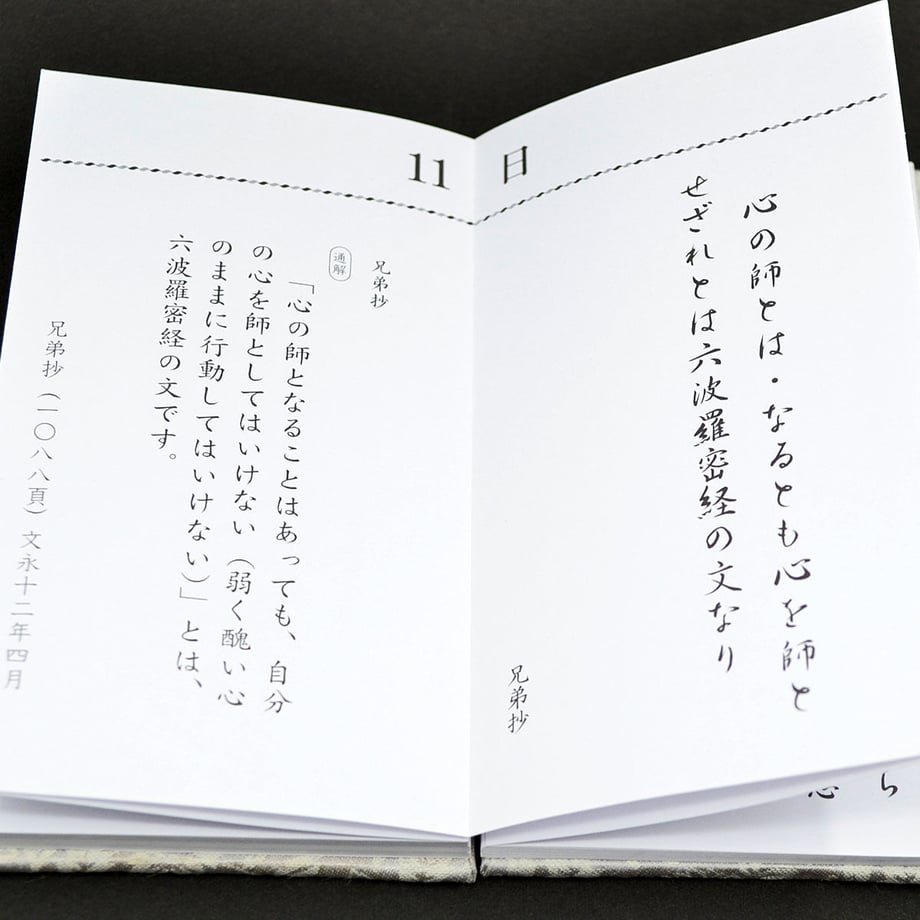 11日
心の師とは・なるとも心を師と
せざれとは六波羅密経の文なり
兄弟抄
兄弟抄
通解
「心の師となることはあっても、自分
の心を師としてはいけない（弱く醜い心
のままに行動してはいけない）」とは、
六波羅密経の文です。
兄弟抄（一〇八八頁）文永十二年四月